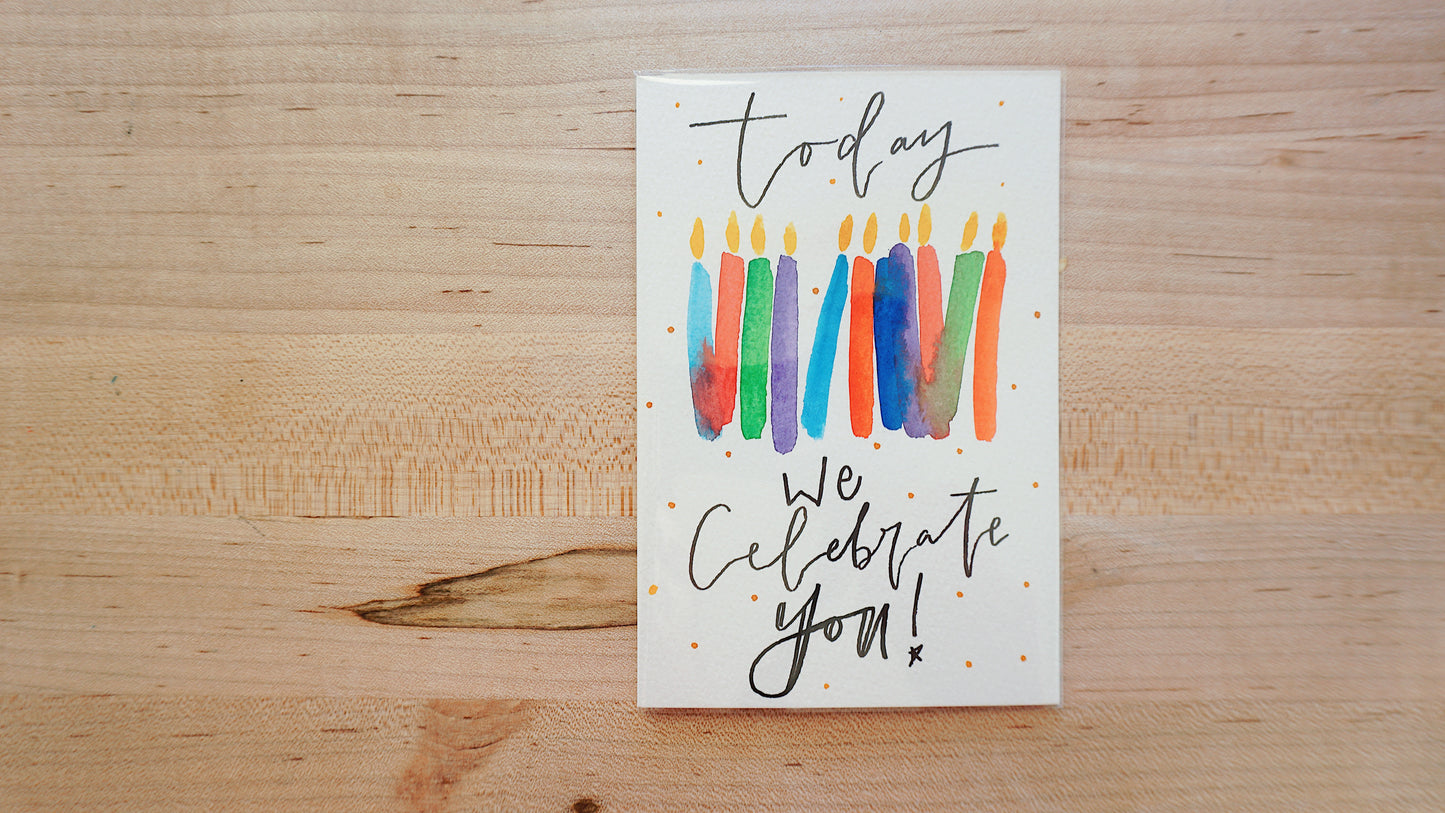 today
we
Celebrate
you!